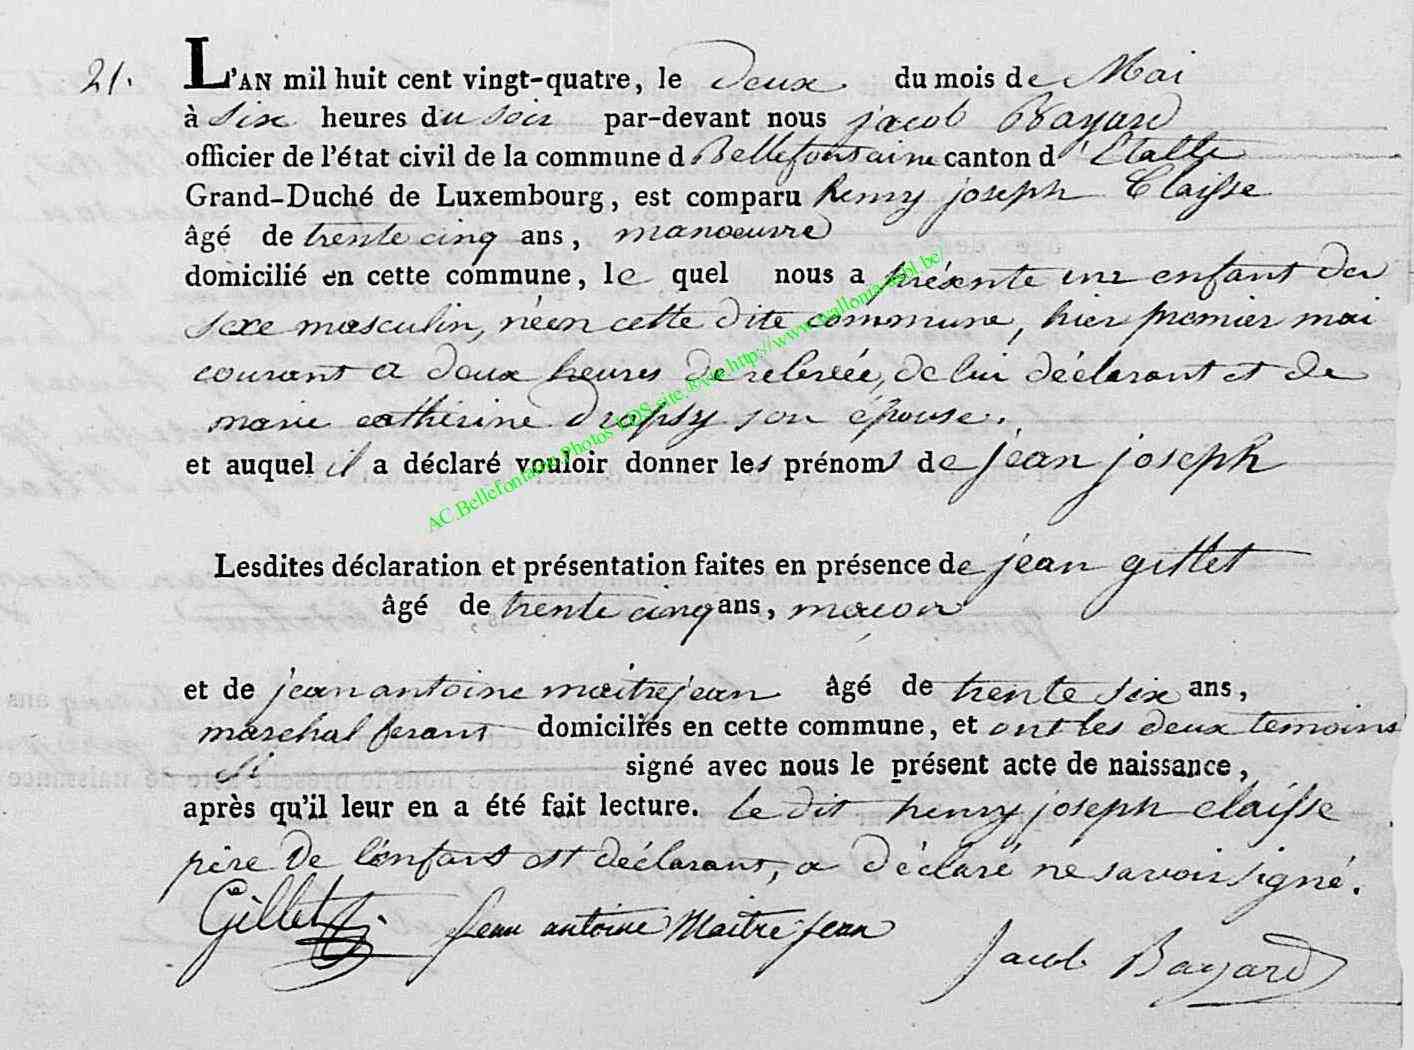 21. L'AN mil huit cent vingt-quatre, le deux du mois de Mai
à six heures du soir par-devant nous jacob Bayard
officier de l'état civil de la commune d Bellefontaine canton d'Etalle
Grand-Duché de Luxembourg, est comparu henry joseph Claisse
âgé de trente cinq ans, manoeuvre
domicilié en cette commune, le quel nous a présente un enfant du
sexe masculin, né en cette dite commune, hier premier mai
courant a deux heures de relevée, de lui déclarant et de
marie catherine Dropsy son épouse.
et auquel il a déclaré vouloir donner les prénoms de jean joseph
Lesdites déclaration et présentation faites en présence de jean gillet
âgé de trente cinq ans, macon
et de jean antoine maitrejean âgé de trente six ans,
marchal ferant domiciliés en cette commune, et ont les deux temoins
signé avec nous le présent acte de naissance,
après qu'il leur en a été fait lecture. le dit henry joseph claisse
père de l'enfant et déclarant, a déclaré ne savoir signé.
Gillet jean antoine Maitrejean
Jacob Bayard
AC.Bellefontaine.Photos LDS site.
http://www.wallonia-asbl.be/